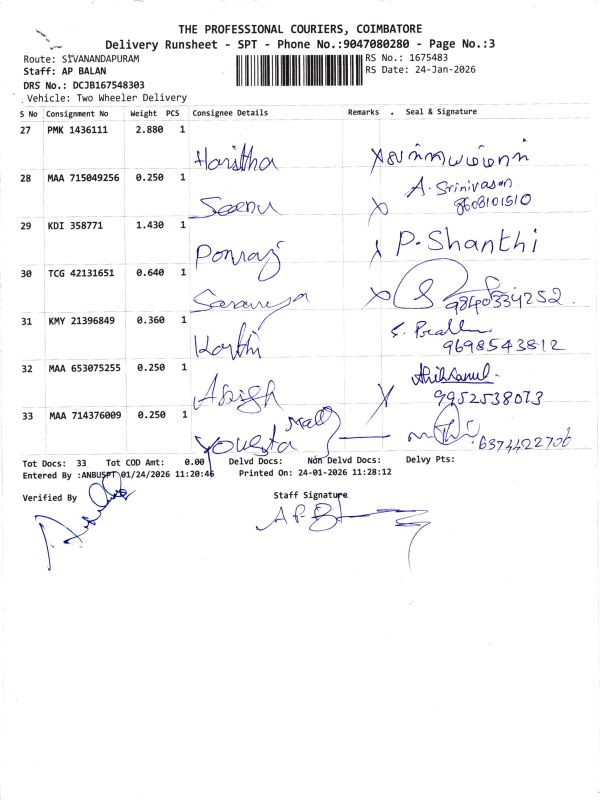 THE PROFESSIONAL COURIERS, COIMBATORE
Delivery Runsheet - SPT - Phone No.:9047080280 - Page No.:3
Route: SIVANANDAPURAM
RS No.: 1675483
Staff: AP BALAN
RS Date: 24-Jan-2026
DRS No.: DCJB167548303
Vehicle: Two Wheeler Delivery
S No Consignment No Weight PCS Consignee Details Remarks . Seal & Signature
27 PMK 1436111 2.880 1
Haritha X
28 MAA 715049256 0.250 1
A. Srinivasan
Seenu X 8608101510
29 KDI 358771 1.430 1
Ponraj X P. Shanthi
30 TCG 42131651 0.640 1
Saranya X 9840334252
31 KMY 21396849 0.360 1
Karthi 9698543812
32 MAA 653075255 0.250 1
X 9952538073
33 MAA 714376009 0.250 1
6374422706
Tot Docs: 33 Tot COD Amt: 0.00 Delvd Docs: Non Delvd Docs: Delvy Pts:
Entered By :ANBUSPT 01/24/2026 11:20:46 Printed On: 24-01-2026 11:28:12
Verified By Staff Signature